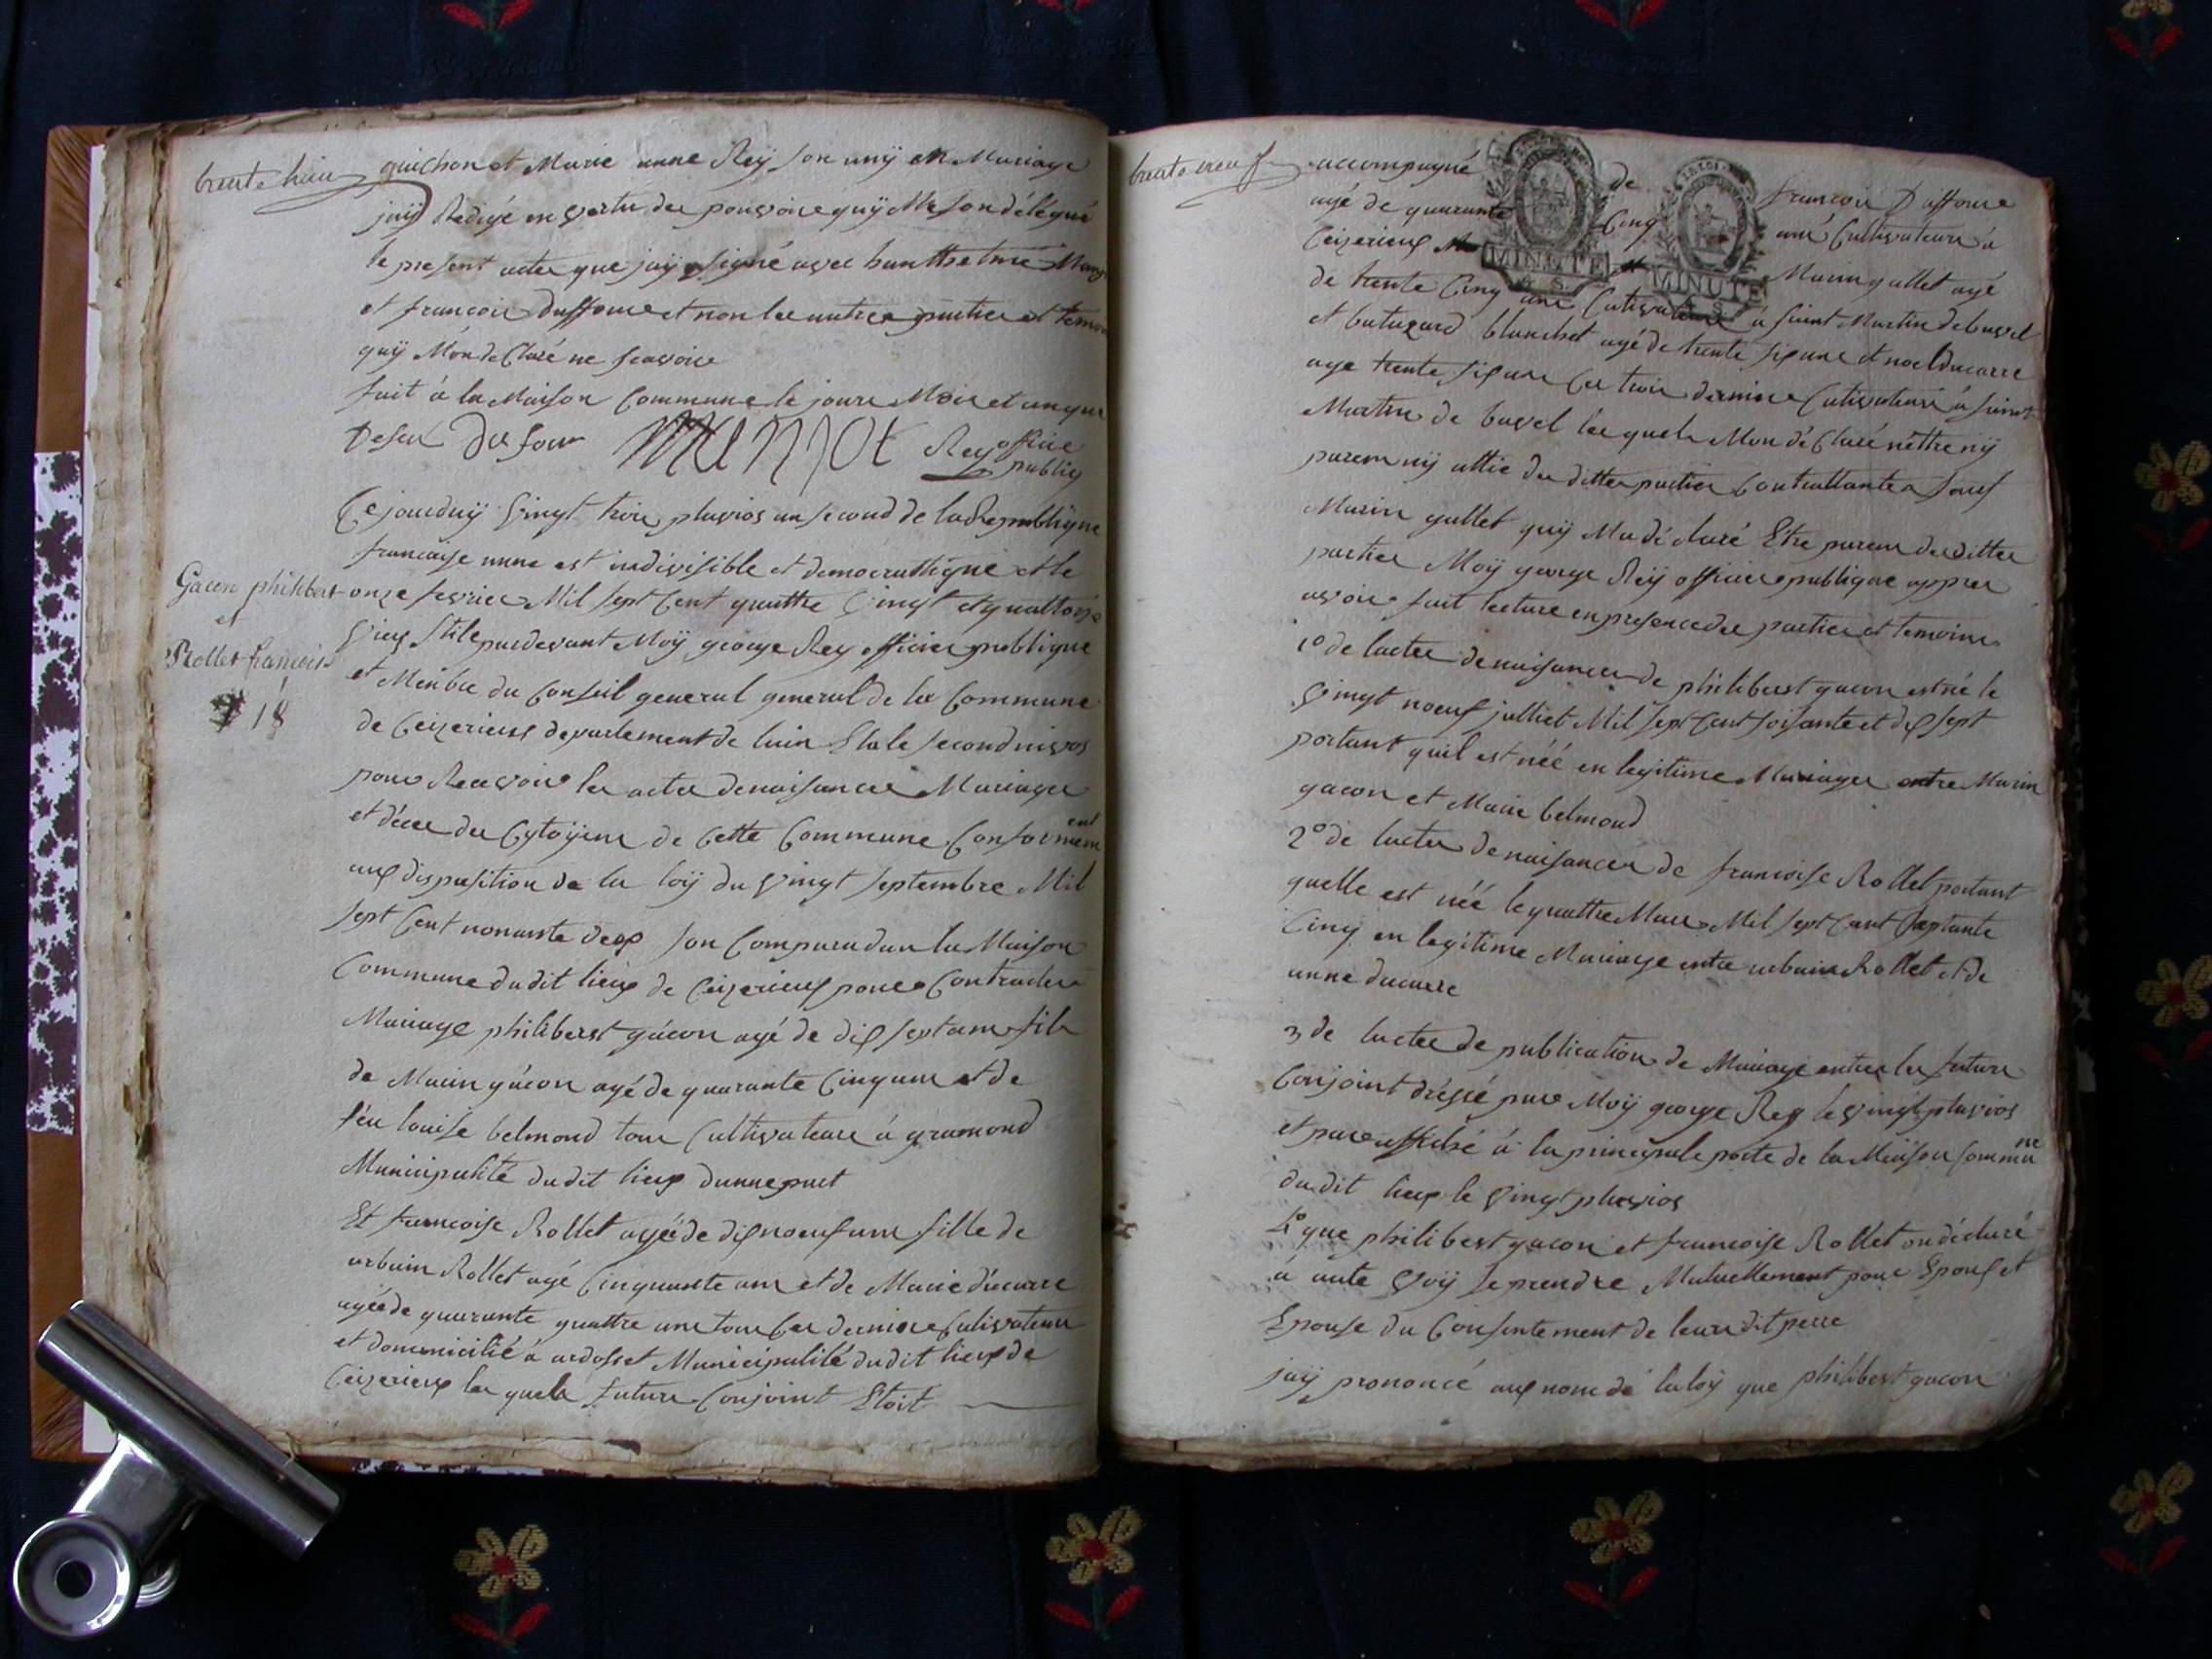 trente huit
guichon et Marie anne Reÿ son unÿ en Mariage
jaiy Redigé en vertu des pouvoire quÿ Me son délégué
le present actes que jaÿ signé avec
et francois Duffour et non les autres parties et temoin
quÿ Mon de Claré ne scavoire
fait à la Maison Commune le jours Mois et an que
Desus Dufour Rey officie
publiq
Ce jourduÿ vingt trois pluvios an second de la Republique
francaise unne est indivisible et democrattique et le
Gacon philibert
et
Rollet francois
18
onze fevrier Mil sept Cent quattre vingt et quattorze
vieu stile pardevant Moÿ george Rey officier publique
et Menbre du Conseil general general de la Commune
de Ceizerieux departement de lain Elu le second nivos
pour Recevoir les actes de naisances Mariages
et déces des Cytoÿens de Cette Commune Conformem
ent
aux disposition de la loÿ du vingt septembre Mil
sept Cent nonante deux son Comparu dan la Maison
Commune du dit lieux de Ceizerieux pour Contracter
Mariage philiberst gácon agé de dix sept ans fils
de Marin gácon agé de quarante Cinq ans et de
féu louise belmond tous Cultivateurs à gramond
Municipalité du dit lieux dunne part
Et francoise Rollet agée de dix noeuf ans fille de
urbain Rollet agé Cinquante ans et de Marie ducarre
agée de quarante quattre ans tous Ces derniers Cultivateur
et domicilié à ardosset Municipalité du dit lieux de
Ceizerieux les quels futurs Conjoint Etoit
trente neuf
accompagné de francois Duffour
agé de quarante Cinq ans Cultivateur à
Ceizerieux Marin gallet agé
MINUTE
MINUTE
de trente Cinq ans Cultivateur à saint Martin de bavel
et balazard blanchet agé de trente six ans et noel ducarre
age trente six ans Ces trois derniers Cultivateurs à saint
Martin de bavel les quels Mon dé Claré nêttre nÿ
parem nÿ allié des dittes parties Contrattantes sauf
Marin gallet quÿ Ma dé claré Etre parem des dittes
parties Moÿ george Reÿ officier publique appres
avoir fait lecture en presence des parties et temoins
1º de lactes de naisances de philiberst gacon est né le
vingt noeuf julliet Mil sept Cent soisante et dix sept
portant quil est néé en legitime Mariages entre Marin
gacon et Marie belmond
2º de lactes de naisances de francoise Rollet portant
quelle est néé le quattre Mars Mil sept Cent septante
Cinq en legitime Mariage entre urbain Rollet et de
anne ducarre
3 de lactes de publication de Mariage entre les futurs
Conjoint dréssé par Moÿ george Reÿ le vingt pluvios
et pareuffiché à la principale porte de la Maison Commu
ne
du dit lieux le vingt pluvios
4º que philiberst gacon et francoise Rollet on déclaré
à aute voÿ se prendre Mutuellement pour Epoux et
Epouse du Consentement de leurs dit perre
jaÿ prononcé aux nom dé la loÿ que philibert gacon